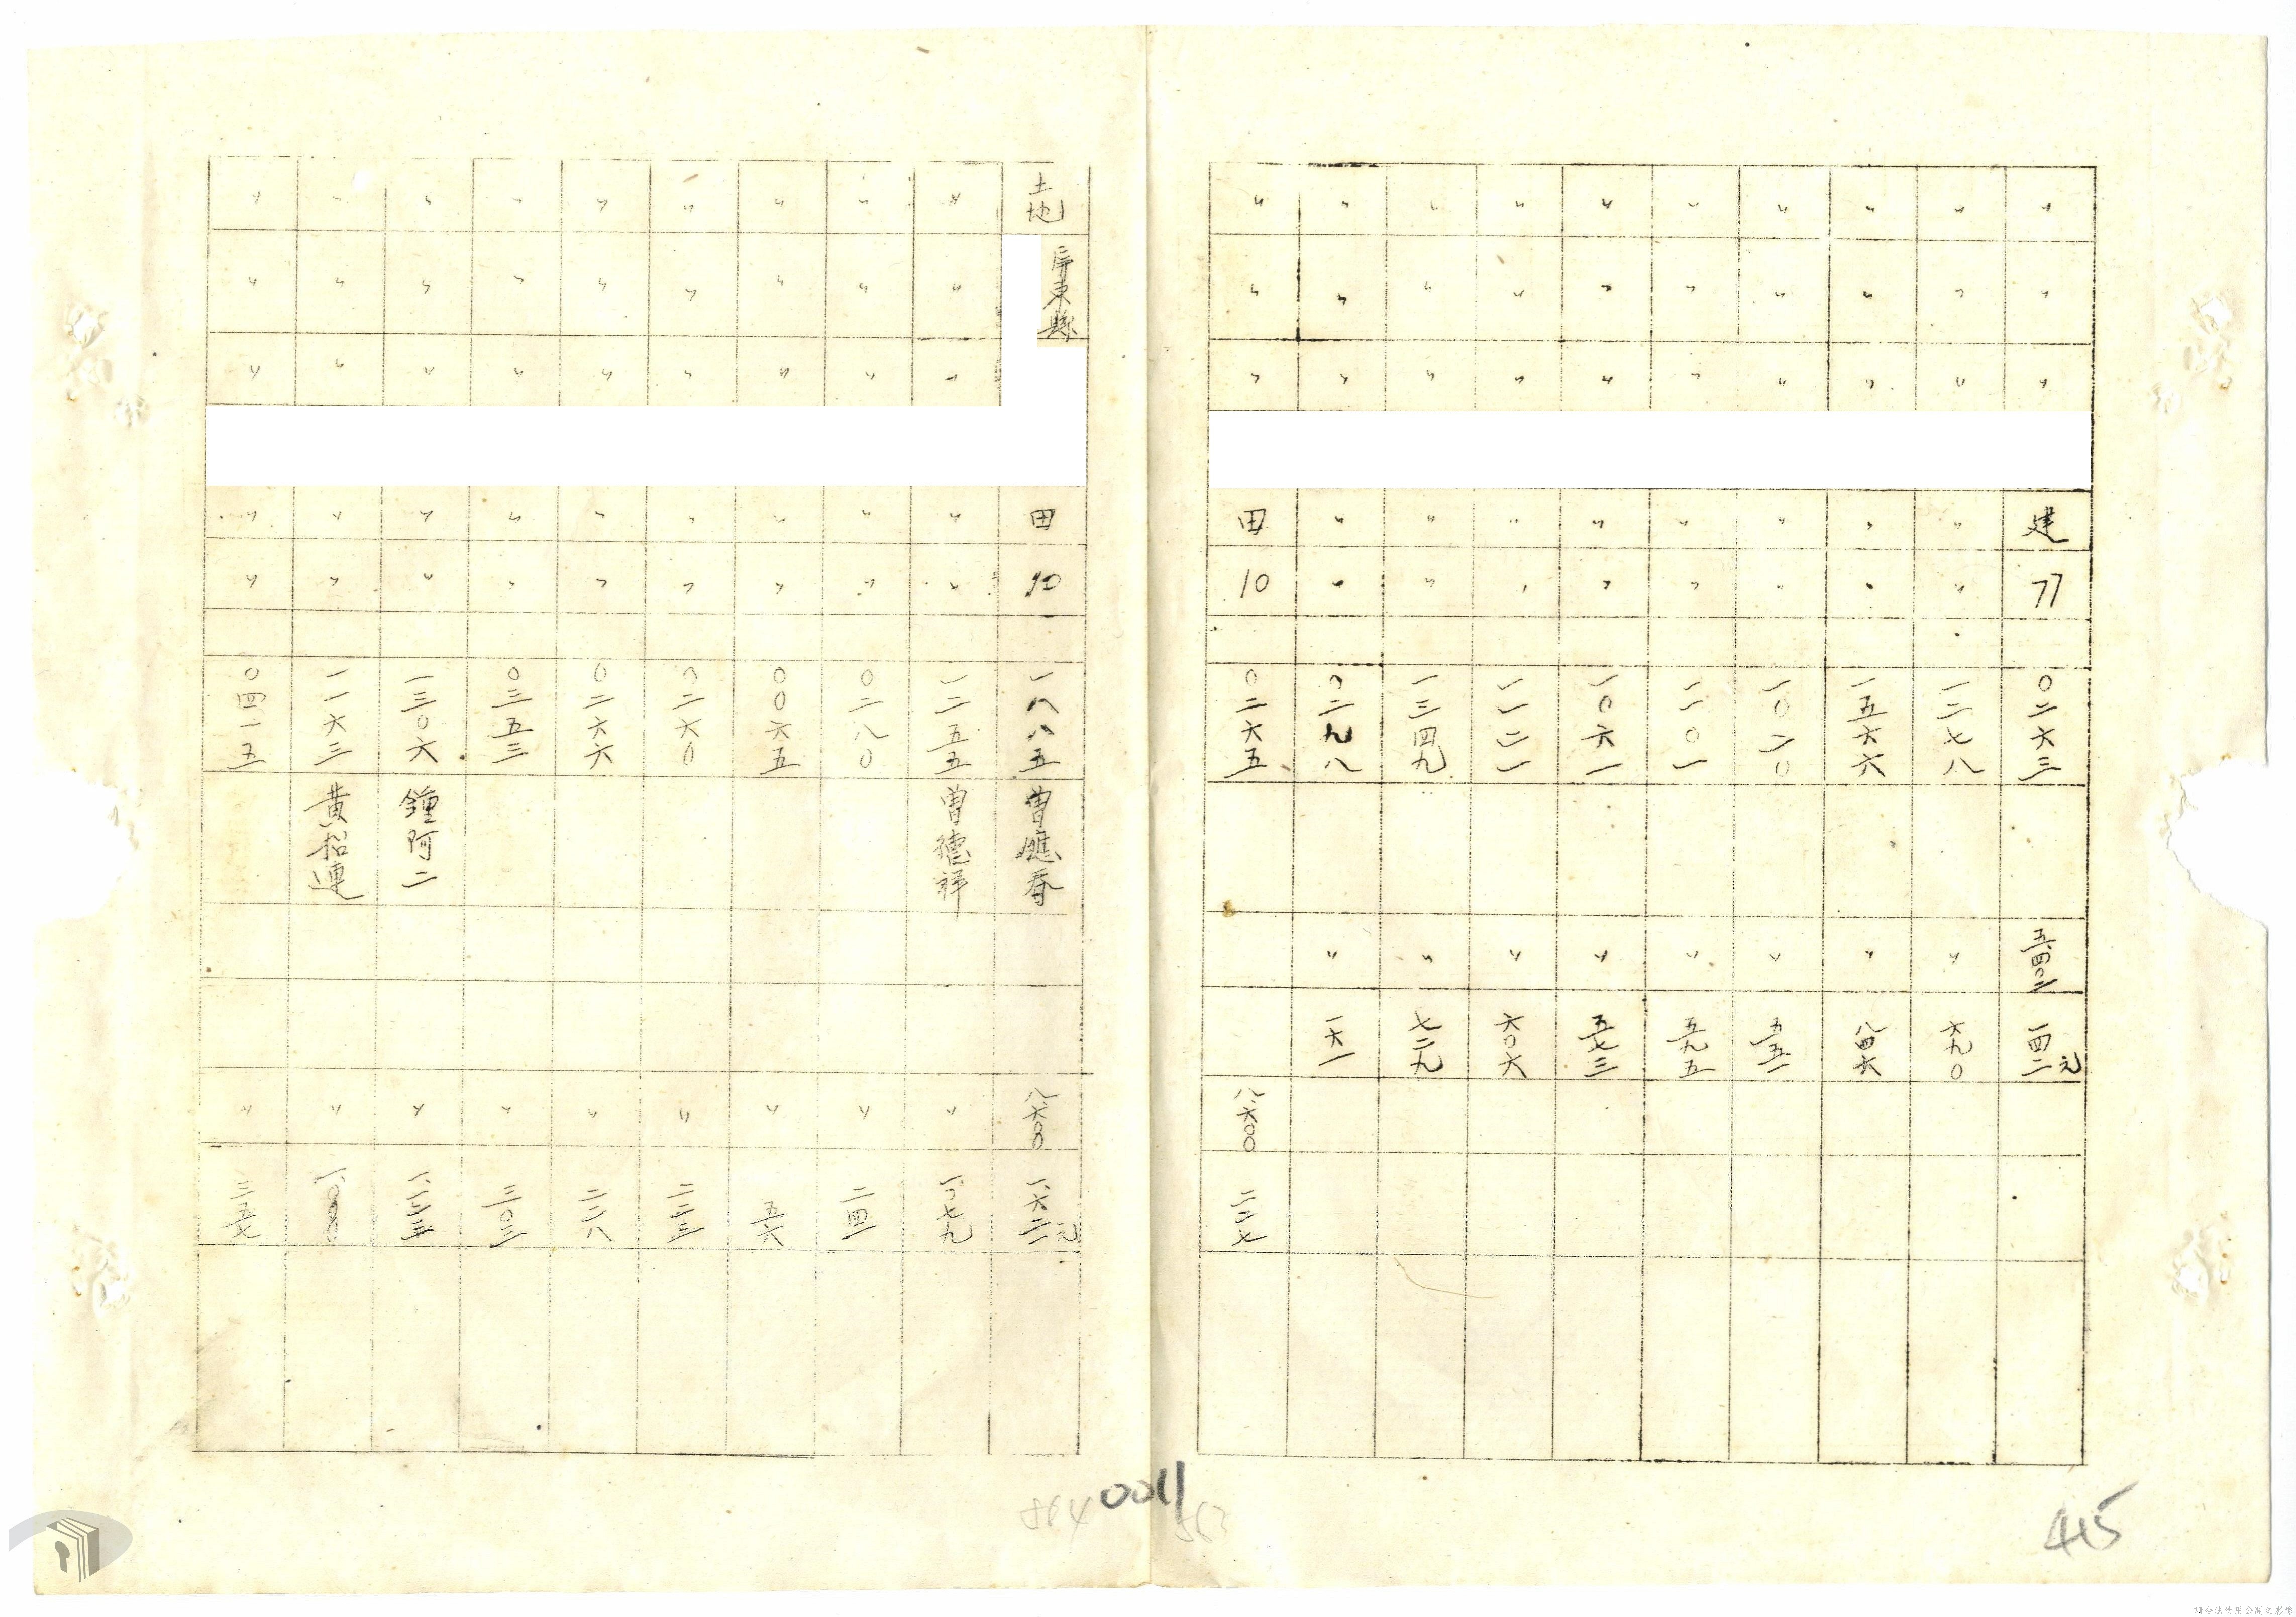 〃 〃 〃 建 77 〇二六三 五.四〇二 一四二元
〃 〃 〃 〃 〃 一二七八 〃 六九〇
〃 〃 〃 〃 〃 一五六六 〃 八四六
〃 〃 〃 〃 〃 一〇二〇 〃 五五一
〃 〃 〃 〃 〃 一一〇一 〃 五九五
〃 〃 〃 〃 〃 一〇六一 〃 五七三
〃 〃 〃 〃 〃 〃 六〇六
〃 〃 〃 〃 〃 一三四九 〃 七二九
〃 〃 〃 〃 〃 〇二九八 〃 一六一
〃 〃 〃 田 10 〇二六五 八.六〇〇 二二七
土地 屏東縣 田 10 一八八五 曾應春 八.六〇〇 一.六二一元
〃 〃 〃 〃 〃 一二五五 曾德祥 〃 一.〇七九
〃 〃 〃 〃 〃 〇二八〇 〃 二四一
〃 〃 〃 〃 〃 〇〇六五 〃 五六
〃 〃 〃 〃 〃 〇二六〇 〃 二二三
〃 〃 〃 〃 〃 〇二六六 〃 二二八
〃 〃 〃 〃 〃 〇三五三 〃 三〇三
〃 〃 〃 〃 〃 一三〇六 鍾阿二 〃 一.一二三
〃 〃 〃 〃 〃 一一六三 黃招連 〃
〃 〃 〃 〃 〃 〇四一五 〃 三五七
864 0011 863
415
請合法使用公開之影像